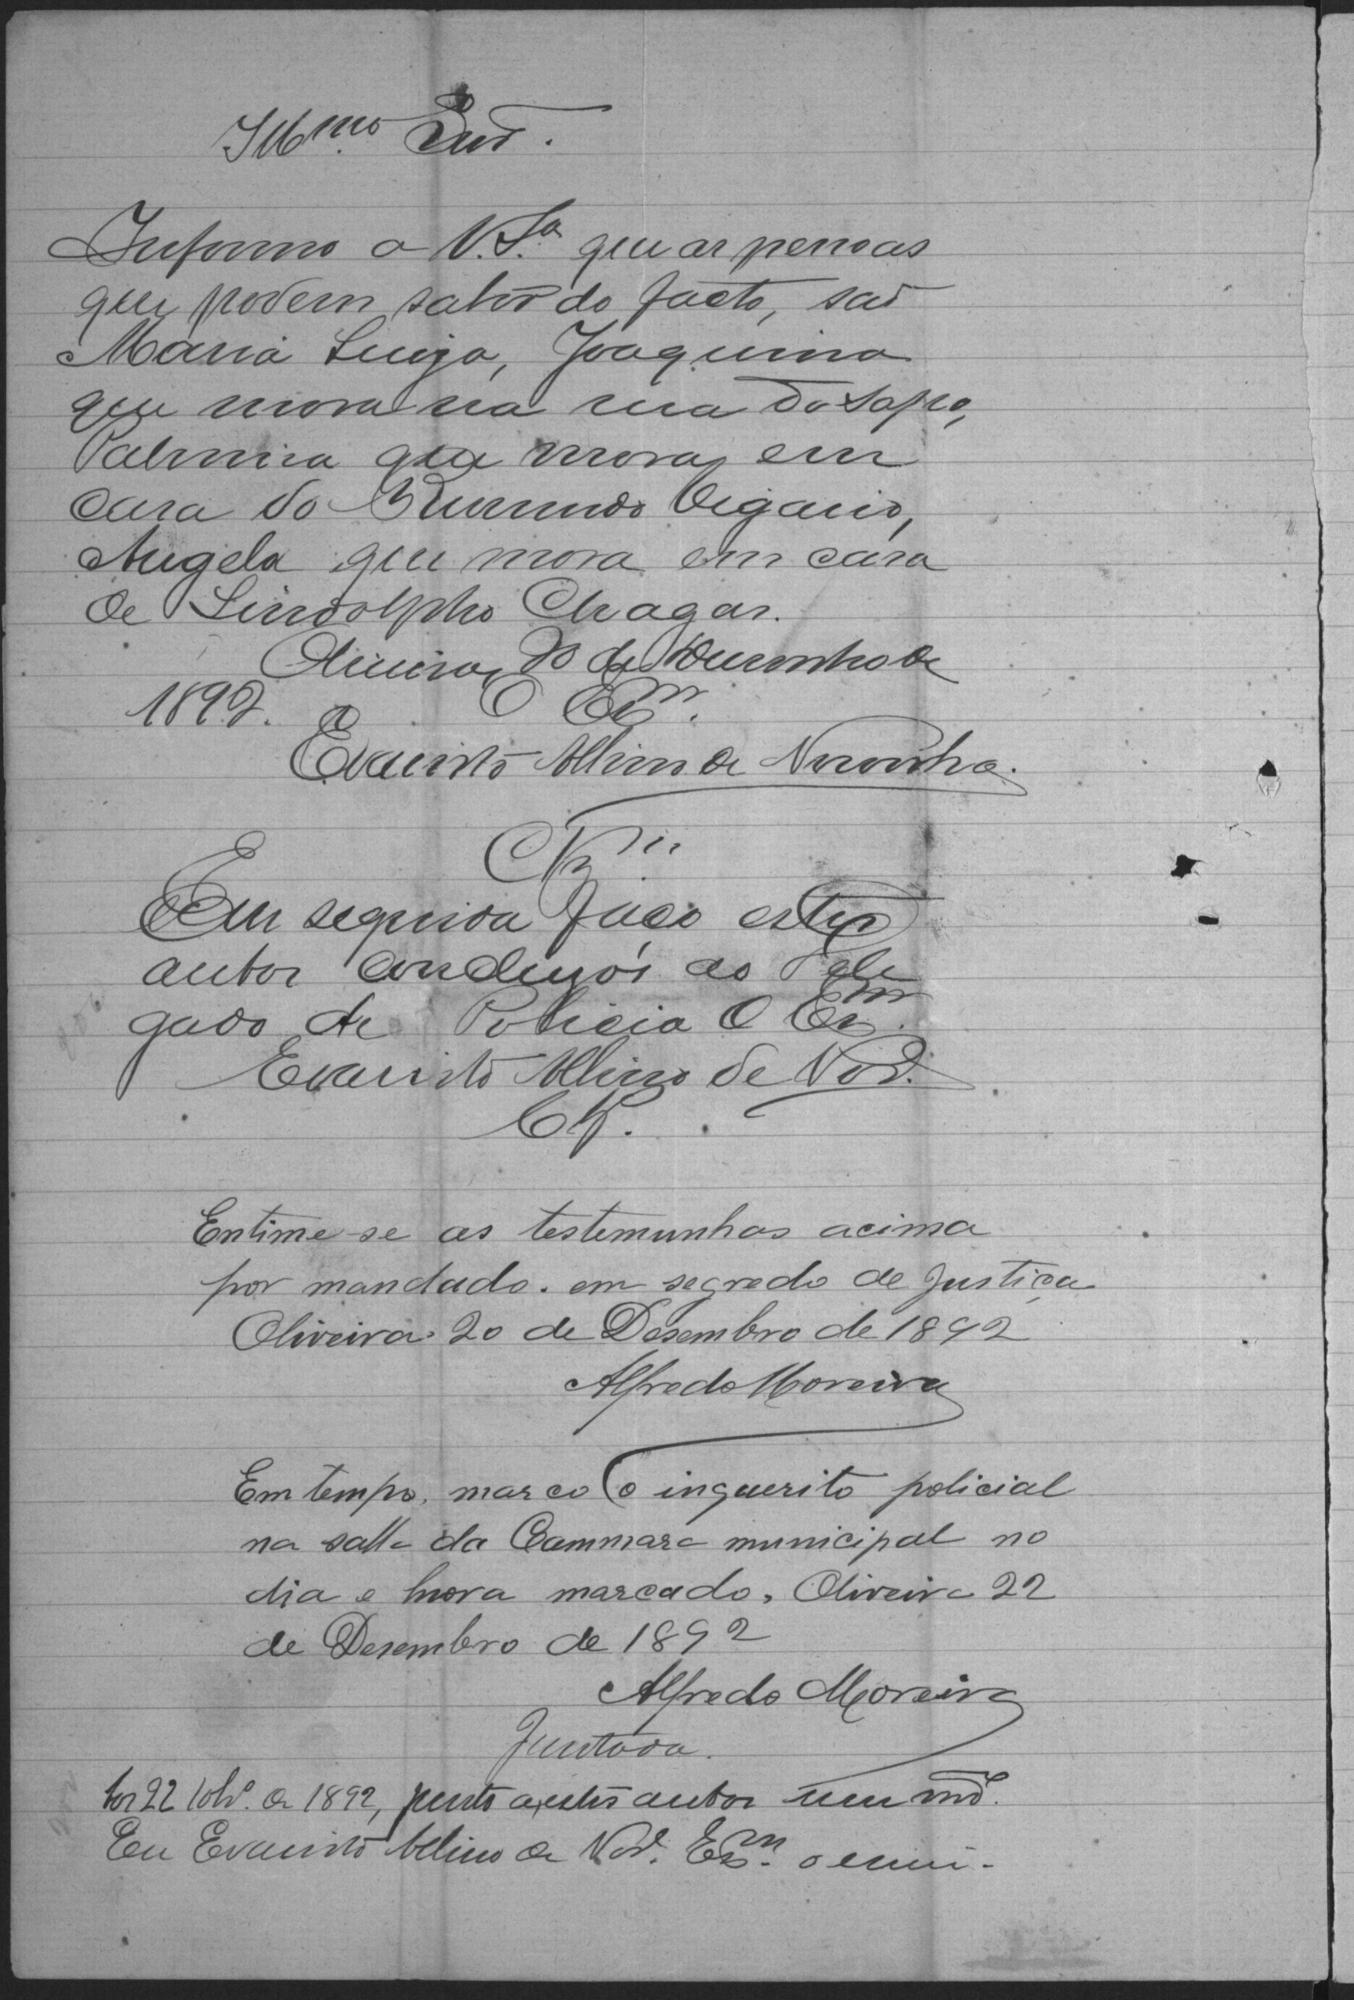 Illmo Snr.
Informo a V. Sª que as pessoas
que podem saber do facto, são
Maria Luiza, Joaquina
que mora na rua do Sapo,
Palmira que mora em
casa do Rvurendo Vigario,
Angela que mora em casa
de Lindolpho Chagas.
Oliveira, 20 de Dezembro de
1892. O Ecm.
Evaristo Albino de Noronha.
Clz.m
Em seguida faço estes
autos conclusos ao Dele
gado de Policia O Ecm.
Evaristo Albino de Nor.
Clz.
Entime-se as testemunhas acima
por mandado. em segredo de Justiça
Oliveira 20 de Desembro de 1892
Alfredo Moreira
Em tempo, marco o inquerito policial
na salla da Cammara municipal no
dia e hora marcado, Oliveira 22
de Desembro de 1892
Alfredo Moreira
Juntada.
22 de 1892, junto a estes autos um md.
Eu Evaristo Albino de Nor. Ecm. o escrevi.